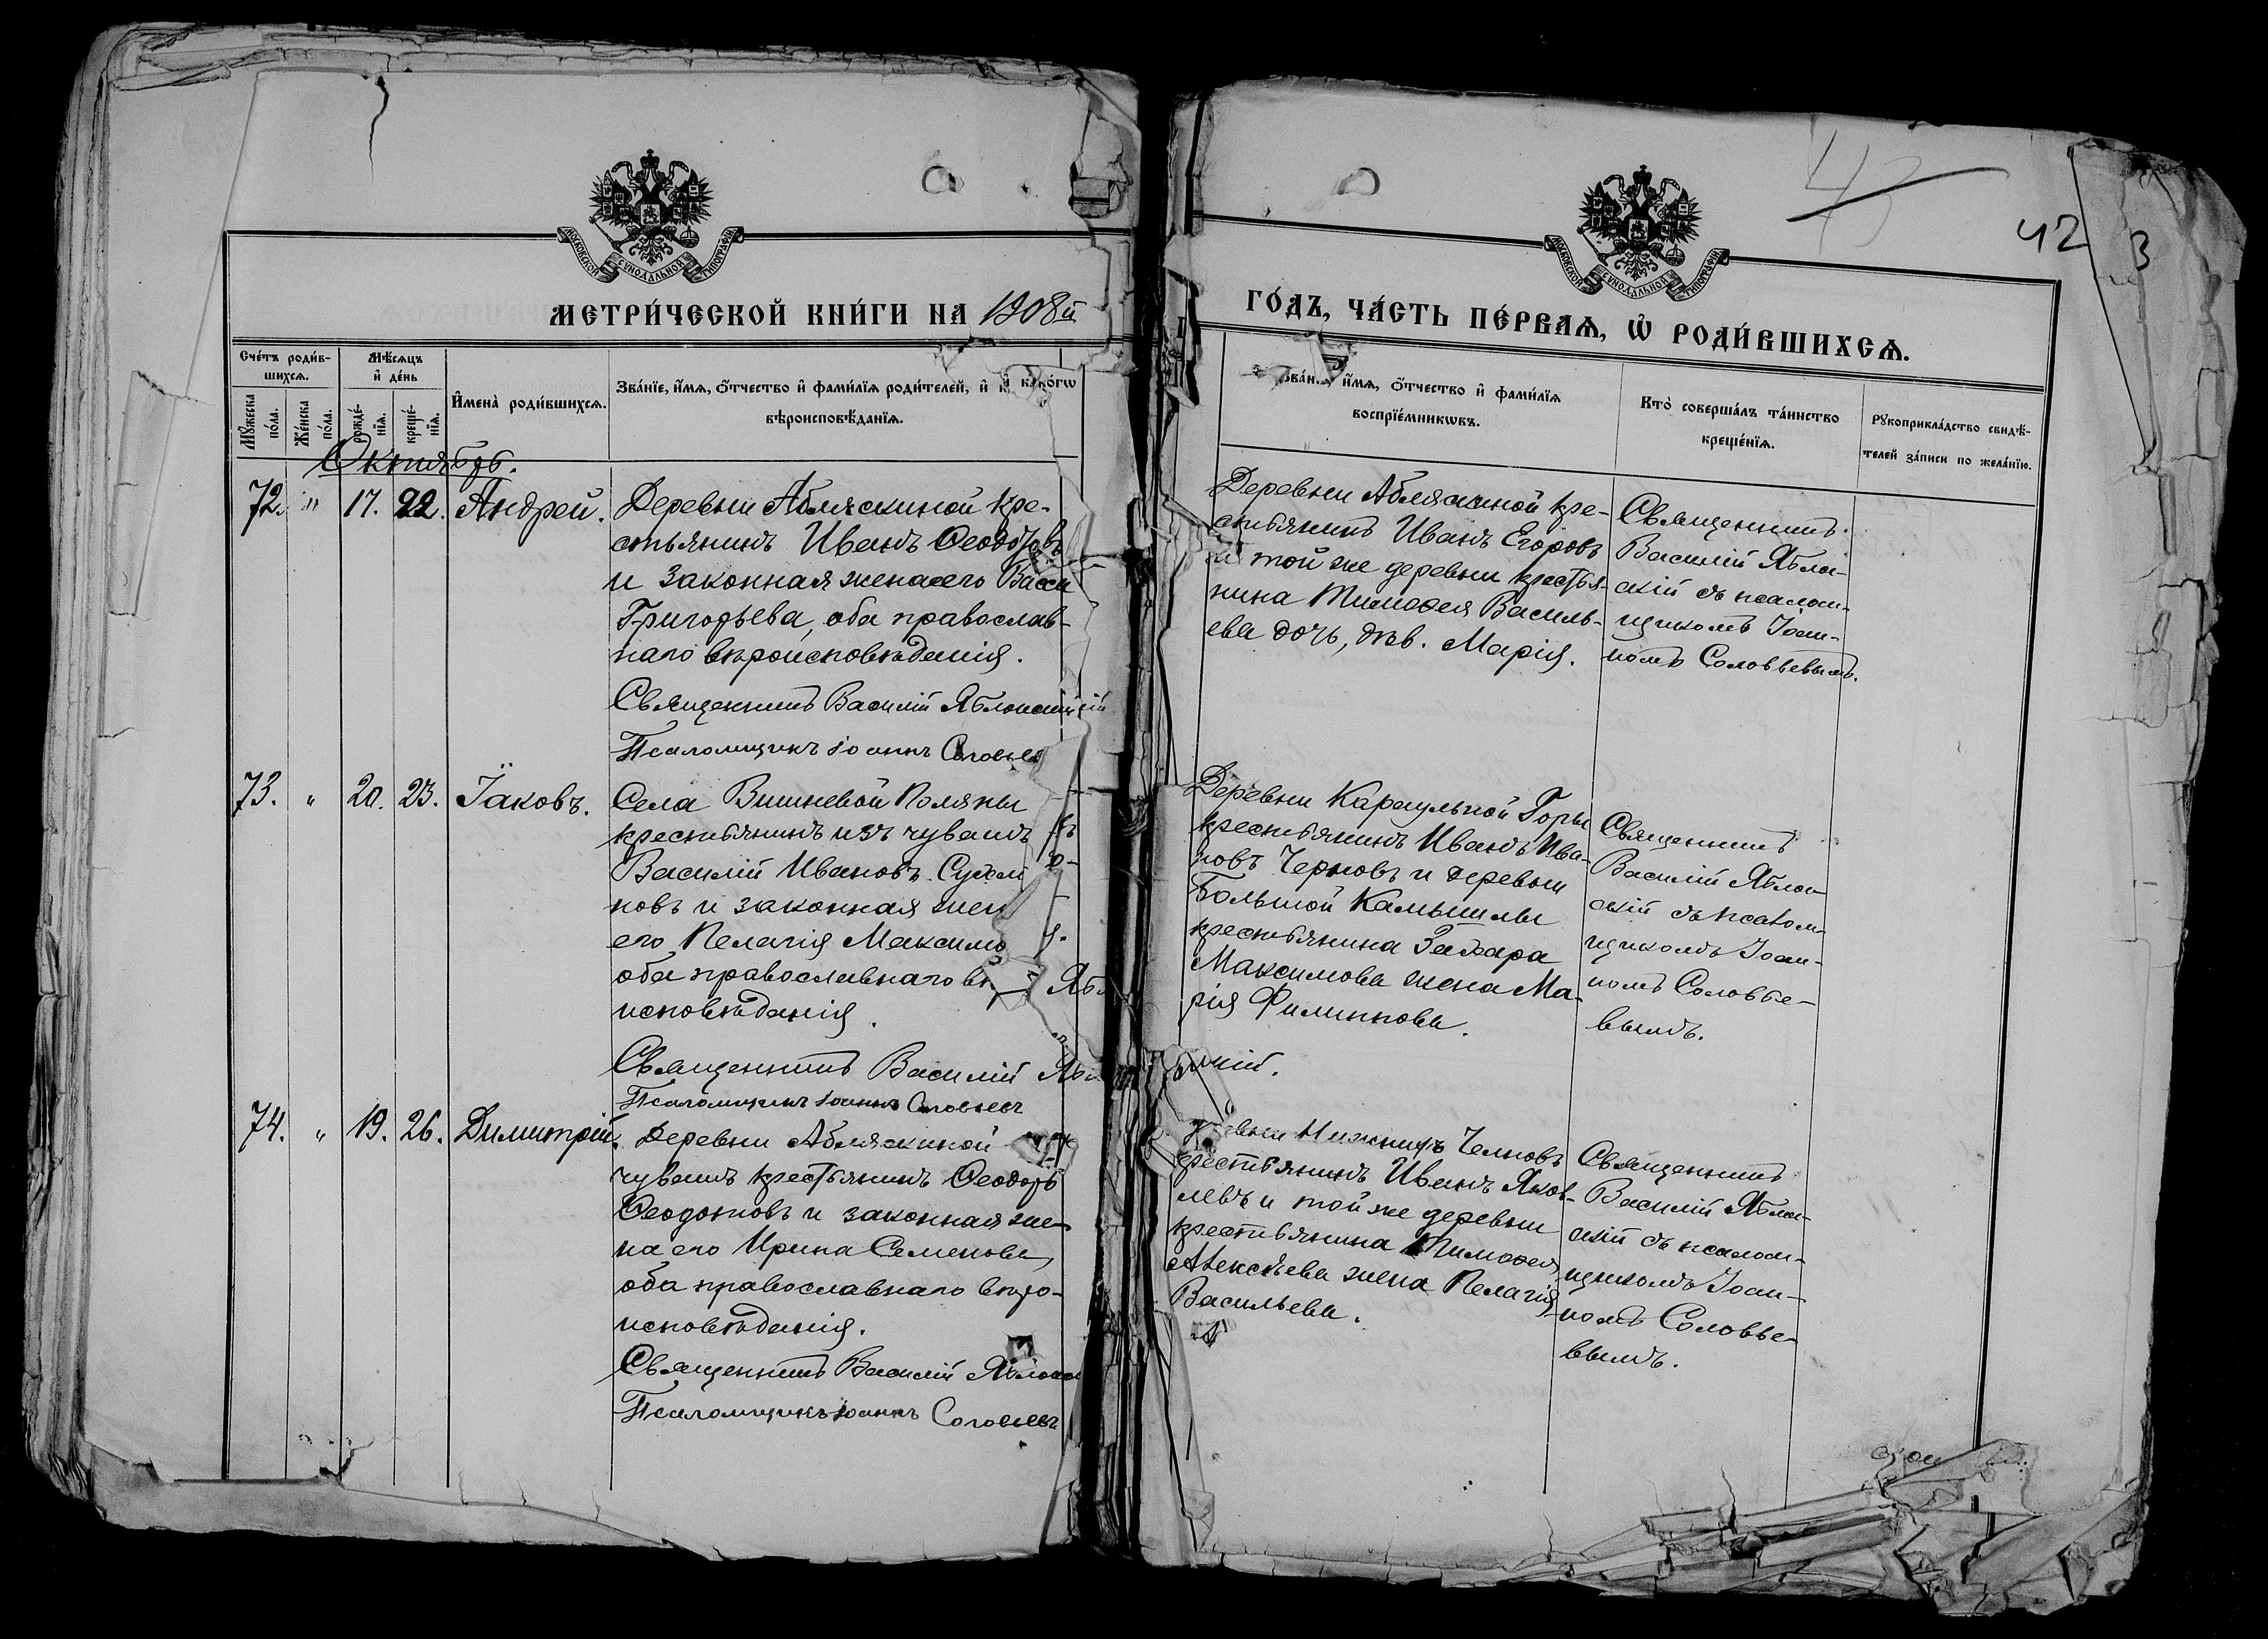 МОСКОВСКОЙ СУНОДАЛЬНОЙ ТИПОГРАФІИ
МЕТРИ́ЧЕСКОЙ КНИ́ГИ НА 1908й
Сче́тъ роди́в-
шихсѧ.
Мѣ́сѧцъ
и҆ де́нь
И҆мена̀ роди́вшихсѧ.
Зва́нїе, и҆́мѧ, ѻ҆́тчество и҆ фами́лїѧ роди́телей, и҆
вѣроисповѣ́данїѧ.
Мꙋ́жеска
по́ла.
Же́нска
по́ла.
рожде́-
нїѧ.
креще́-
нїѧ.
Октябрь.
72. " 17. 22. Андрей.
Деревни Абляскиной кре-
стьянинъ Иванъ Ѳеодотовъ
и законная жена его Васса
Григорьева, оба православ-
наго вѣроисповѣданія.
Священникъ Василій Яблонскій
Псаломщикъ Іоаннъ Соловьевъ
73. " 20. 23. Іаковъ.
Села Вишневой Поляны
крестьянинъ изъ чувашъ
Василій Ивановъ
новъ и законная жен
его Пелагія Максимо
оба православнаго вѣ
исповѣданія.
Священникъ Василій Ябл
Псаломщикъ Іоаннъ Соловьевъ
74. " 19. 26. Димитрій.
Деревни Абляскиной
чувашъ крестьянинъ Ѳеодоръ
Ѳеодотовъ и законная же-
на его Ирина Семенова,
оба православнаго вѣро-
исповѣданія.
Священникъ Василій Яблонск
Псаломщикъ Іоаннъ Соловьевъ
42
МОСКОВСКОЙ СУНОДАЛЬНОЙ ТИПОГРАФІИ
ГО́ДЪ, ЧА́СТЬ ПЕ́РВАѦ, Ѡ҆ РОДИ́ВШИХСѦ.
и҆́мѧ, ѻ҆́тчество и҆ фами́лїѧ
воспрїе́мникѡвъ.
Кто̀ соверша́лъ та́инство
креще́нїѧ.
Рꙋкоприкла́дство свидѣ́-
телей за́писи по жела́нїю.
Деревни Абляскиной кре-
стьянинъ Иванъ Егоровъ
и той же деревни крестья-
нина Тимоѳея Василь-
ева дочь, дѣв. Марія.
Священникъ
Василій Яблон-
скій съ псалом-
щикомъ Іоан-
номъ Соловьевымъ.
Деревни Караульной Горы
крестьянинъ Иванъ Ива-
новъ Черновъ и деревни
Большой Камышлы
крестьянина Захара
Максимова жена Ма-
рія Филиппова.
Священникъ
Василій Яблон-
скій съ псалом-
щикомъ Іоан-
номъ Соловье-
вымъ.
скій.
Нижнихъ Челновъ
крестьянинъ Иванъ Яков-
левъ и той же деревни
крестьянина Тимоѳея
Алексѣева жена Пелагія
Васильева.
Священникъ
Василій Яблон-
скій съ псалом-
щикомъ Іоан-
номъ Соловье-
вымъ.